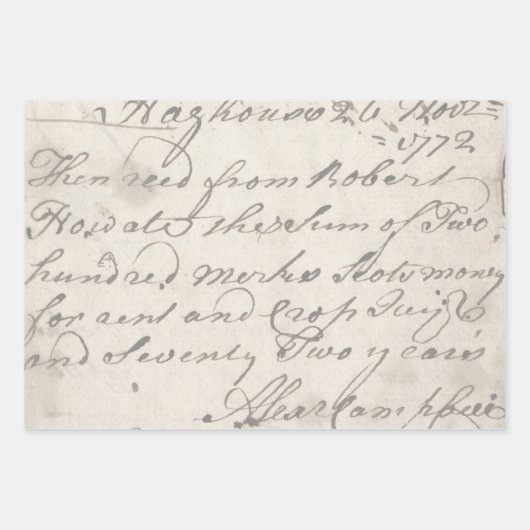 Haghouse 26 Novr
1772
Then recd from Robert
Howate the Sum of Two
hundred Merks Scots money
for rent and Crop
and Seventy Two years
Alexr Campbell